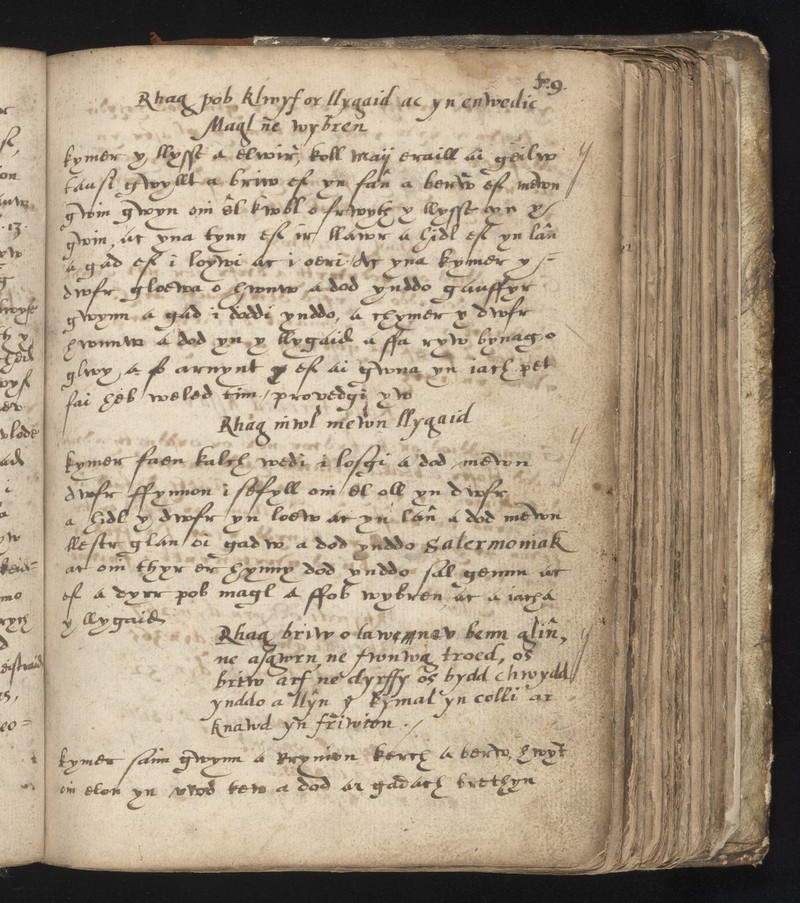 fo. 9.
Rhag pob klwyf or llygaid ac yn enwedic
Magl ne wybren
kymer y llysse a elwir, koll maij eraill ai geilw
tansi gwyllt a briw ef yn fan a berw ef mewn
gwin gwyn oni el kwbl o frwyth y llysse yn y
gwin, ac yna tynn ef ir llawr a hidl ef yn lan
a gad ef i loywi ac i oeri Ac yna kymer y
dwfr gloewa o hwnw a dod ynddo gauffyr
gwynn a gad i doddi ynddo, a chymer y dwfr
hwnnw a dod yn y llygaid a ffa ryw bynag o
glwy a fo arnynt ef ai gwna yn iach pet
fai heb weled dim / provedgi yw
Rhag niwl mewn llygaid
kymer faen kalch wedi i losgi a dod mewn
dwfr ffynnon i sefyll oni el oll yn dwfr
a hidl y dwfr yn loew ac yn lan a dod mewn
llestr glan oi gadw a dod ynddo Salermoniak
ac oni thyr er hynny dod ynddo sal gemm ac
ef a dyrr pob magl a ffob wybren ac a iacha
y llygaid
Rhag briw o law neu benn glin,
ne asgwrn ne fwnwg troed, os
briw arf ne dyrffy os bydd chwydd
ynddo a llyn y kymal yn colli ar
knawd yn friwion.
kymer saim gwynn a Brynion kerch a berw hwynt
oni elon yn uwd tew a dod ar gadach brethyn